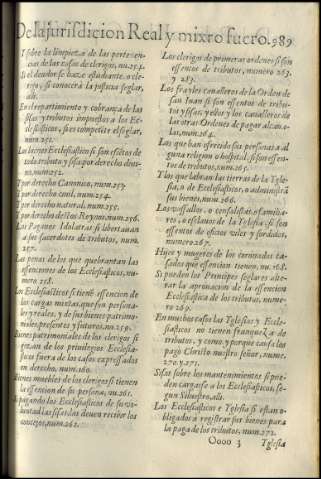 De la jurisdicion Real y mixto fuero. 989
I sobre la limpieza de las pertenencias de las casas de clerigos, nu.251.
Si el deudor se haze estudiante, o clerigo, si conocerà la justicia seglar,
alli.
En el repartimiento y cobrança de las
sisas y tributos impuestos a los Eclesiasticos, si es competente el seglar,
num.252.
Las Iecitas Ecclesiasticos si son essentos de
todo tributo y sisa por derecho diuino, num.252.
I por derecho Canonico, num.253.
I por derecho ciuil, num.254.
I por derecho natural, num.255.
I por derecho destos Reynos, num.256.
Los Paganos Idolatras si libertauan
a sus sacerdotes de tributos, num.
257.
Las penas de los que quebrantan las
essenciones de los Eclesiasticos, numero 258.
Los Eclesiasticos si tienen essencion de
las cargas mixtas, que son personales y reales, y de sus bienes patrimoniales, presentes y futuros, nu.259.
Bienes patrimoniales de los clerigos si
gozan de los priuilegios Eclesiasticos fuera de los casos expressados
en derecho, num.260.
Bienes muebles de los clerigos si tienen
la essencion de su persona, nu.261.
Si pagando los Eclesiasticos de su voluntad las sisas las deuen recibir los
concejos, num.262.
Los clerigos de primeras ordenes si son
essentos de tributos, numero 263.
y 283.
Los frayles caualleros de la Orden de
san Iuan si son essentos de tributos y sisas, y ellos y los caualleros de
las otras Ordenes de pagar alcaualas, num.264.
Las que han ofrecido sus personas a alguna religion o hospital, si son essentos de tributos, num.265.
I los que labran las tierras de la Yglesia, o de Eclesiasticos, o administrã
sus bienes, num.266.
Los vassallos, o comensales, o familiares, o esclauos de la Yglesia, si son
essentos de oficios viles y sordidos,
numero 267.
Hijos y mugeres de los coronados casados que essencion tienen, nu.268.
Si pueden los Principes seglares alterar la aprouacion de la essencion
Eclesiastica de los tributos, numero 269.
En muchos casos las Yglesias y Eclesiasticos no tienen franqueza de
tributos, y como, y porque causa los
pagò Christo nuestro señor, nume.
270. y 271.
Sisas sobre los mantenimientos si pueden cargarse a los Eclesiasticos, segun Siluestro, alli.
Los Eclesiasticos e Yglesia si estan obligados a registrar sus bienes para
la paga de los tributos, num.272.
Oooo 3 Yglesia